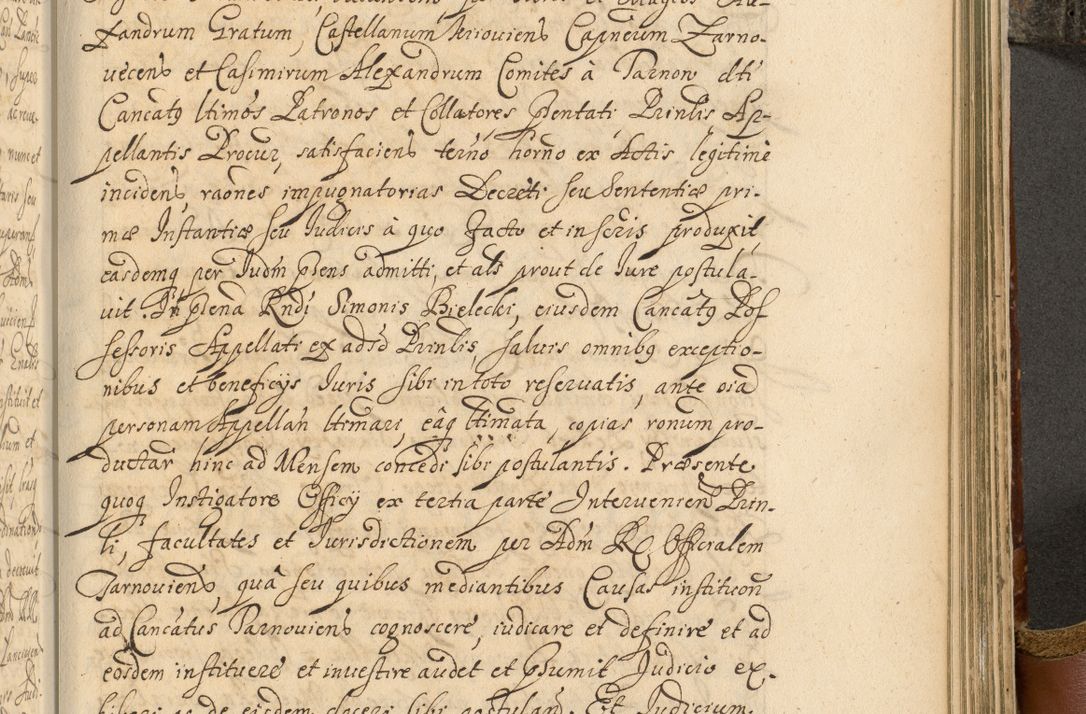 xandrum Gratum, Castellanum Kiioviens Capneum Zarno-
uecens et Casimirum Alexandrum Comites à Tarnon dti
Cancatq ltimos Patronos et Collatores Pentati Prinlis Ap-
pellantis Procur, satisfaciens termo horno ex Actis legitime
incidens, raones impugnatorias Decreti seu Sententiæ pri-
mæ Instantiæ seu Iudicis à quo facto et in scris produxit,
easdemq per Iudm Pens admitti, et als prout de Iure postula-
uit. In Plena Rndi Simonis Bielecki, eiusdem Cancatq Pos
sessoris Appellati ex adso Prinlis saluis omnibq exceptio-
nibus et beneficijs Iuris sibi in toto reseruatis, ante oia
personam Appellan ltimari, eaq ltimata, copias ronum pro-
ductar hinc ad Mensem concedi sibi postulantis. Præsente
quoq Instigatore Officij ex tertia parte Interuenien Prin-
li, facultates et Iurisdictionem per Adm R Officialem
Tarnouiens, qua seu quibus mediantibus Causas instituon
ad Cancatus Tarnouiens cognoscere, iudicare et definire et ad
eosdem instituere et inuestire audet et Psumit Iudicio ex-